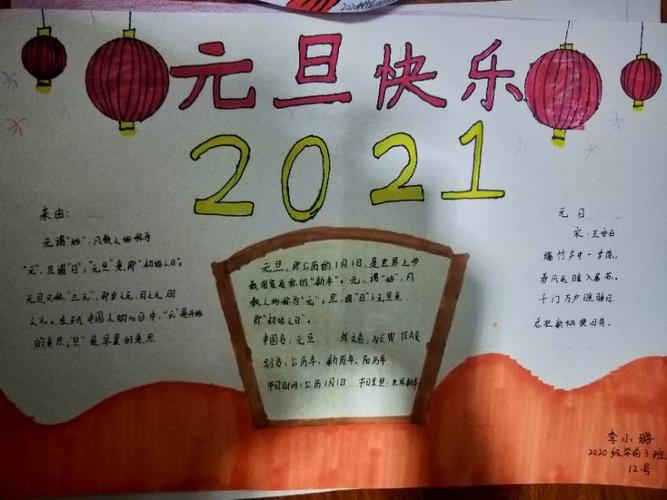 元旦快乐
2021
来由:
元谓"始", 凡数之始称为
"元", 旦谓"日"; "元旦"意即"初始之日"。
元旦又称"三元", 即岁之元、月之元、时
之元。在古代中国人的心目中, "元"是开始
的意思; "旦"是早晨的意思
元旦, 即公历的1月1日, 是世界上多
数国家通称的"新年"。元, 谓"始", 凡
数之始称为"元"; 旦, 谓"日"; 元旦意
即"初始之日"。
中国名: 元旦
英文名: NEW YEAR
别名: 公历年、新历年、阳历年
节日时间: 公历1月1日
节日类型: 世界新年
元日
宋·王安石
爆竹声中一岁除,
春风送暖入屠苏。
千门万户曈曈日,
总把新桃换旧符。
李小璐
2020级学前3班
12号